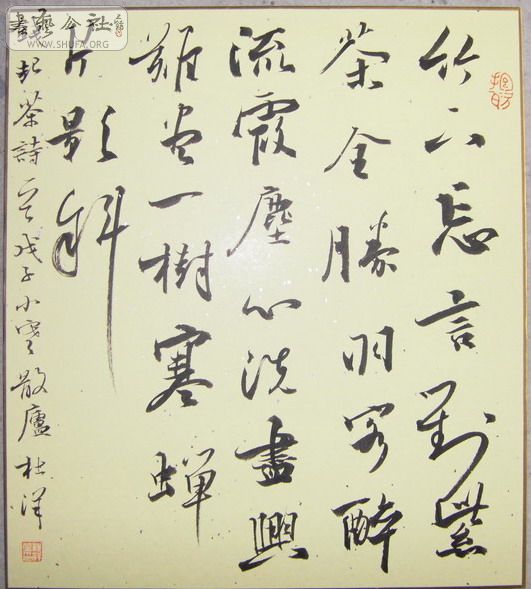 書藝公社
WWW.SHUFA.ORG
竹下忘言對紫
茶全勝羽客醉
流霞塵心洗盡興
難尽一樹寒蝉
片影斜
起茶詩一首戊子小寒散廬杜洋